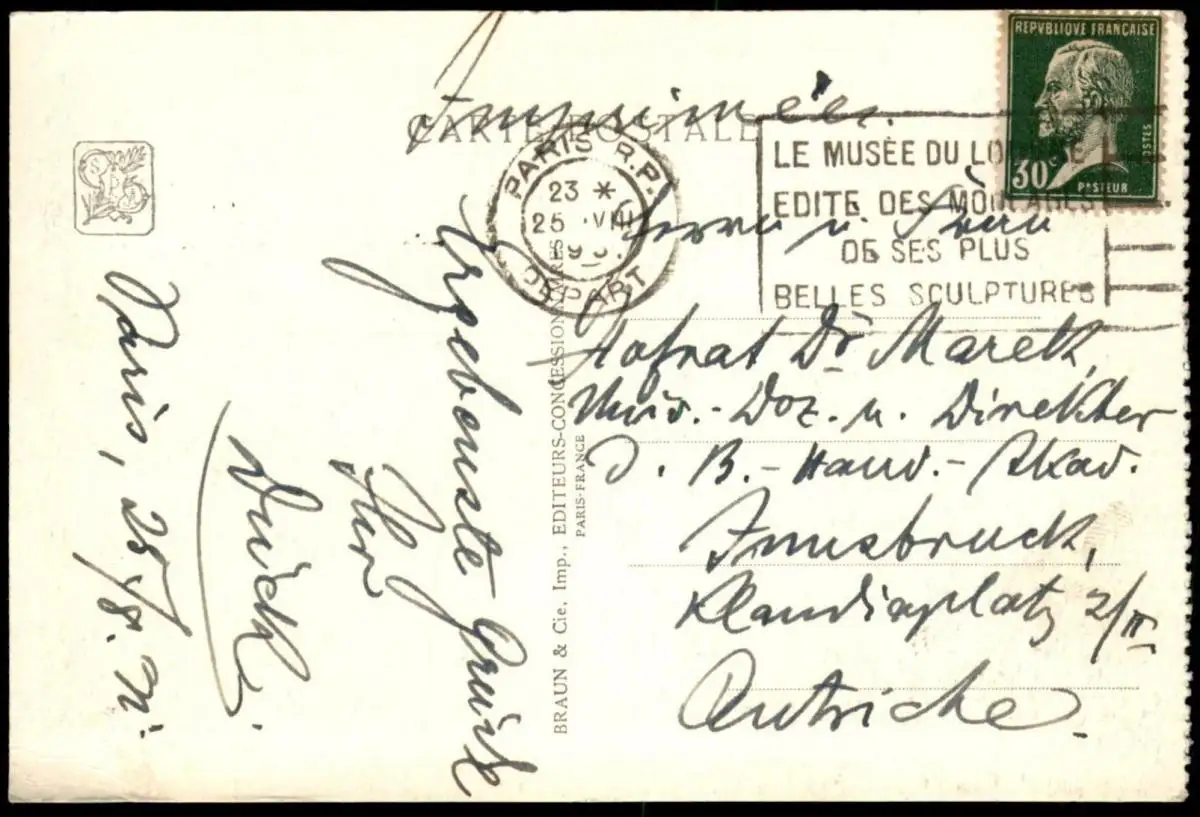 Imprimées.
CARTE POSTALE
REPVBLIQVE FRANÇAISE
30c
POSTES
PASTEUR
PARIS R.P.
23 *
25 VIII
DEPART
LE MUSÉE DU LOUVRE
EDITE DES MOULAGES
DE SES PLUS
BELLES SCULPTURES
Herrn u. Frau
Hofrat Dr Marek,
Univ.-Doz. u. Direktor
d. B.-Hand.-Akad.
Innsbruck,
Claudiaplatz 2/III
Autriche.
Paris, 25/8.
Ergebenste Grüße
Ihr
BRAUN & Cie, Imp., EDITEURS-CONCESSIONNAIRES
PARIS-FRANCE